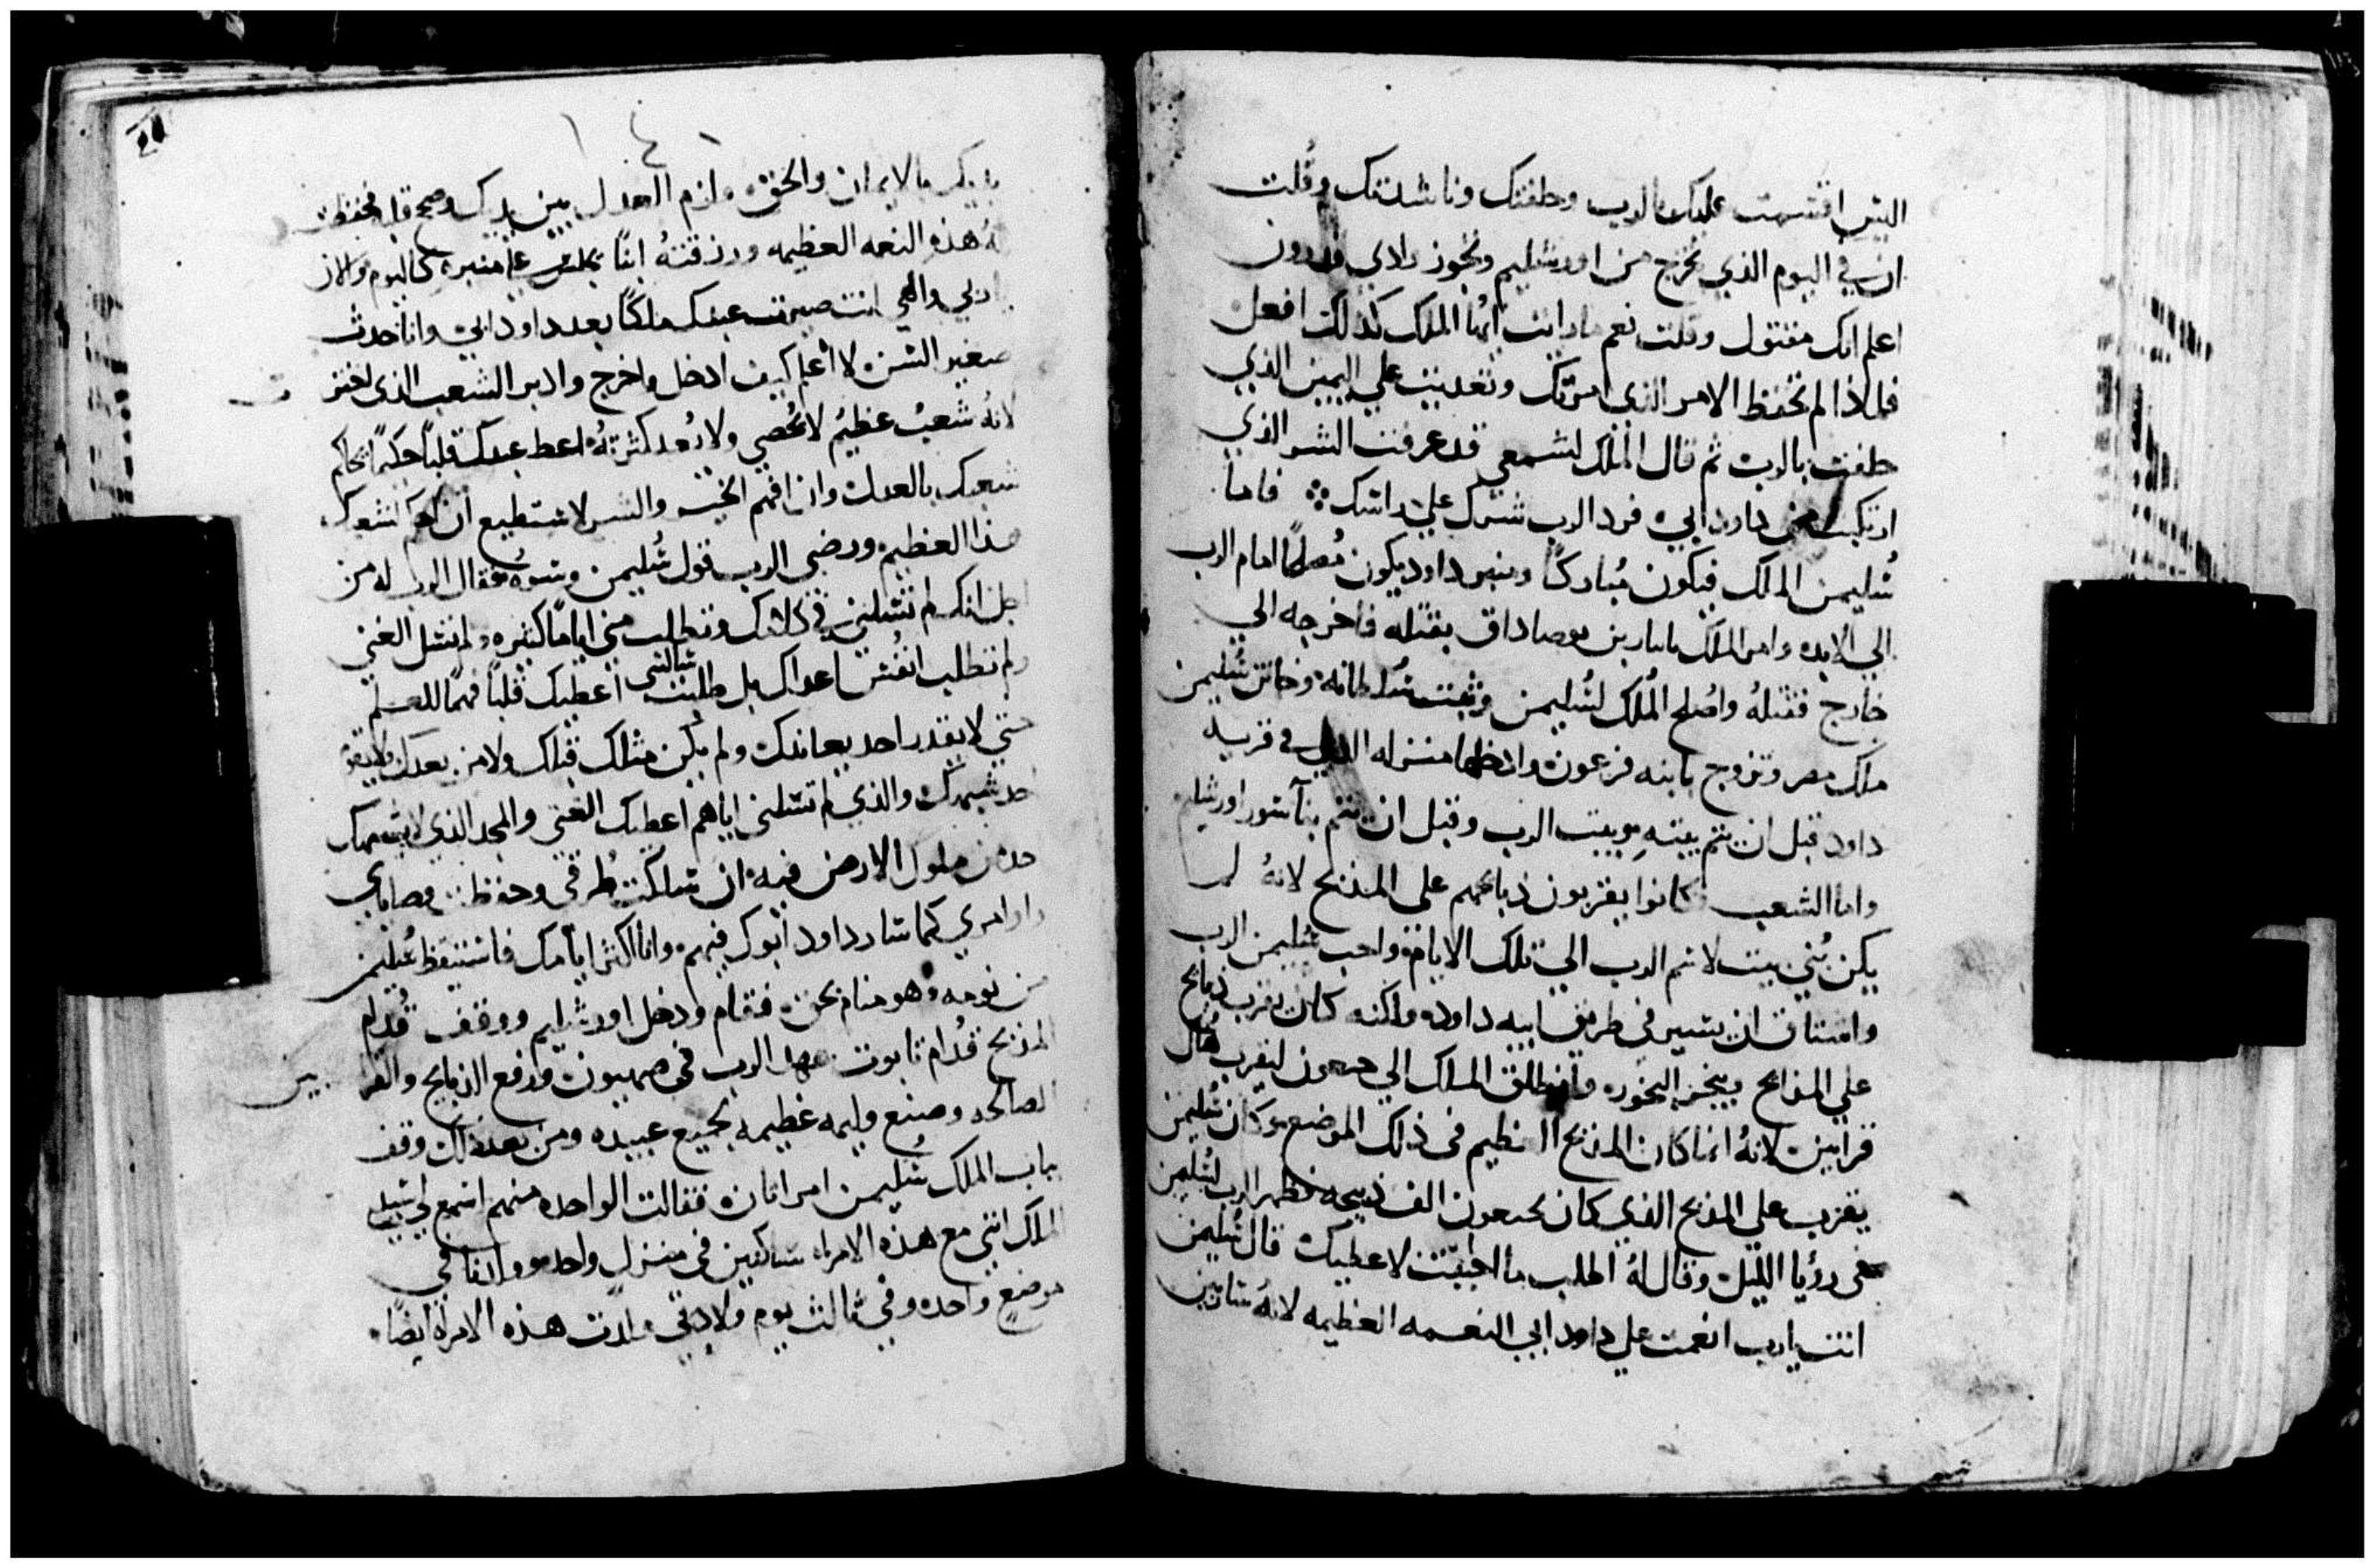 اليس اقسمت عليك بالرب وحلفتك وناشدتك وقلت
ان في اليوم الذي تخرج من اورشليم وتجوز وادي قدرون
اعلم انك مقتول وقلت نعم ما رايت ايها الملك كذلك افعل
فلماذا لم تحفظ الامر الذي امرتك وتعديت علي اليمين الذي
حلفت بالرب ثم قال الملك لشمعي قد عرفت الشر الذي
ارتكبت من داود ابي فرد الرب شرك علي راسك فاما
سُليمن الملك فيكون مُباركًا ومنبر داود يكون مُصلحًا امام الرب
الي الابد وامر الملك بن يوصاداق بقتله فاخرجه الي
خارج فقتلهُ واصُلح المُلك لسُليمن وثبت سُلطانه وخاتن سُليمن
ملك مصر وتزوج بابنه فرعون وادخلها منزله الذي في قريه
داود قبل ان يتم بيته وبيت الرب وقبل ان يتم بنا سور اورشليم
واما الشعب فكانوا يقربون ذبايحهم علي المذبح لانهُ لم
يكن بُني بيت لاسم الرب الي تلك الايام واحب سُليمن الرب
واشتاق ان يسير في طريق ابيه داود ولكنه كان يقرب ذبايح
علي المذابح ويبخر البخور وانطلق الملك الي جبعون ليقرب هُناك
قرابين لانهُ انما كان المذبح العظيم في ذلك الموضع وكان سُليمن
يقرب علي المذبح الذي كان بجبعون الف ذبيحه فظهر الرب لسُليمن
في رؤيا الليل وقال لهُ اطلب ما احببت لاعطيك قال سُليمن
انت يارب انعمت علي داود ابي النعمه العظيمه لانهُ سار بين
يديك بالايمان والحق ولزم العدل بين يديك وصح قلبه فحفظت
لهُ هذه النعمه العظيمه ورزقتهُ ابنًا يجلس علي منبره كاليوم والان
يا ربي والهي انت صيرت عبدك ملكًا بعد داود ابي وانا حدث
صغير السن لا اعلم كيف ادخل واخرج وادبر الشعب الذي اخترت
لانهُ شعبٌ عظيمٌ لا يُحصي ولا يُعد كثرتهُ اعط عبدك قلبًا حكيمًا يحاكم
شعبك بالعدل وان افهم الخير والشر لا ستطيع ان احكم لشعبك
هذا العظيم ورضي الرب قول سُليمن وسوه فقال الرب له من
اجل انك لم تسلني في ذلك وتطلب مني ايامًا كثيره ولم تسل الغني
ولم تطلب انفُس اعداك بل طلبت سالتني اعطيك قلبًا فهمًا للعلم
حتي لا يقدر احد يعاندك ولم يكن مثلك قبلك ولا من بعدك ولا يقوم
احد شبهك والذي لم تسلني اياهم اعطيك الغني والمجد الذي لا يشبهك
احد من ملوك الارض فيه ان سلكت طُرقي وحفظت وصاياي
واوامري كما سار داود ابوك فيهم وانا اكثر ايامك فاستيقظ سُليمن
من نومه وهو منام بحق فقام ودخل اورشليم ووقف قُدام
المذبح قُدام تابوت عهد الرب في صهيون ورفع الذبايح والقرابين
الصالحه وصنع وليمه عظيمه لجميع عبيده ومن بعد ذلك وقف
بباب الملك سُليمن امراتان فقالت الواحده منهم اسمع لي سيدي
الملك انني مع هذه الامراه ساكنين في منزل واحد ووالدنا في
موضع واحد وفي ثالث يوم ولادتي ولدت هذه الامراه ايضًا